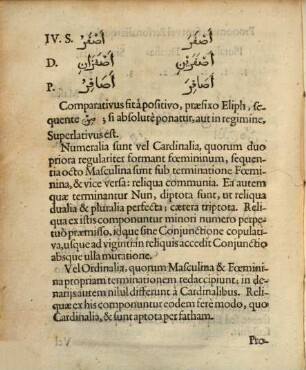 IV. S. أَصْفَرُ أَصْفَرَ
D. أَصْفَرَانِ أَصْفَرَيْنِ
P. أَصَافِرُ أَصَافِرَ
Comparativus fit à positivo, præfixo Eliph, se-
quente مِنْ; si absolutè ponatur, aut in regimine,
Superlativus est.
Numeralia sunt vel Cardinalia, quorum duo
priora regulariter formant fœmininum, sequen-
tia octo Masculina sunt sub terminatione Fœmi-
nina, & vice versa: reliqua communia. Ea autem
quæ terminantur Nun, diptota sunt, ut reliqua
dualia & pluralia perfecta; cætera triptota. Reli-
qua ex istis componuntur minori numero perpe-
tuò præmisso, idque sine Conjunctione copulati-
va, usque ad viginti: in reliquis accedit Conjunctio
absque ulla mutatione.
Vel Ordinalia, quorum Masculina & Fœmini-
na propriam terminationem redaccipiunt; in de-
narijs autem nil ul differunt à Cardinalibus. Reli-
quæ ex his componuntur eodem ferè modo, quo
Cardinalia, & sunt aptota per fatham.
Pro-